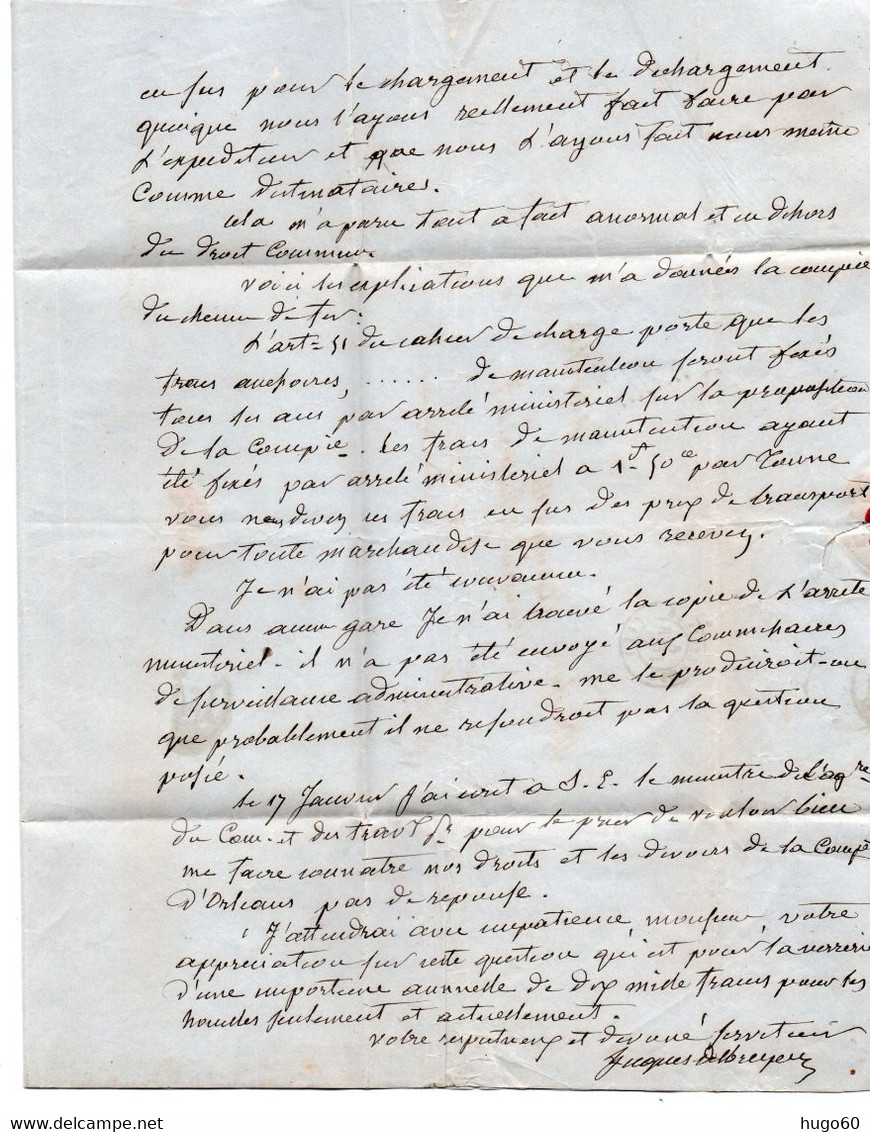 en sus pour le chargement et le dechargement.
quoique nous l'ayons reellement fait faire par
L'expediteur et que nous L'ayons fait nous meme
Comme destinataires.
Cela m'a paru tout a fait anormal et en dehors
du droit Commun.
Voici les explications que m'a données la compie
du chemin de fer:
L'art= 51 du cahier de charge porte que les
frais accessoires, ...... de manutention seront fixés
tous les ans par arrêté ministeriel sur la proposition
De la Compie. Les frais de manutention ayant
été fixés par arrêté ministeriel a 1f 50ce par Tonne
vous nous devez ces frais en sus des prix de transport
pour toute marchandise que vous recevez.
Je n'ai pas été convaincu.
Dans aucune gare Je n'ai trouvé la copie de L'arrete
ministeriel - il n'a pas été envoyé aux Commissaires
de surveillance administrative - me le produiroit-on
que probablement il ne repondroit pas la question
posée.
Le 17 Janvier J'ai ecrit a S. E. le ministre de L'agre
du Com. et des trav pr pour le prier de vouloir bien
me faire connaitre nos droits et les devoirs de la Compe
D'Orleans pas de reponse.
J'attendrai avec impatience, monsieur, votre
appreciation sur cette question qui est pour la verrerie
D'une importance annuelle de dix mille francs pour les
houilles seulement et actuellement.
Votre respectueux et devoué serviteur
Jacques
hugo60